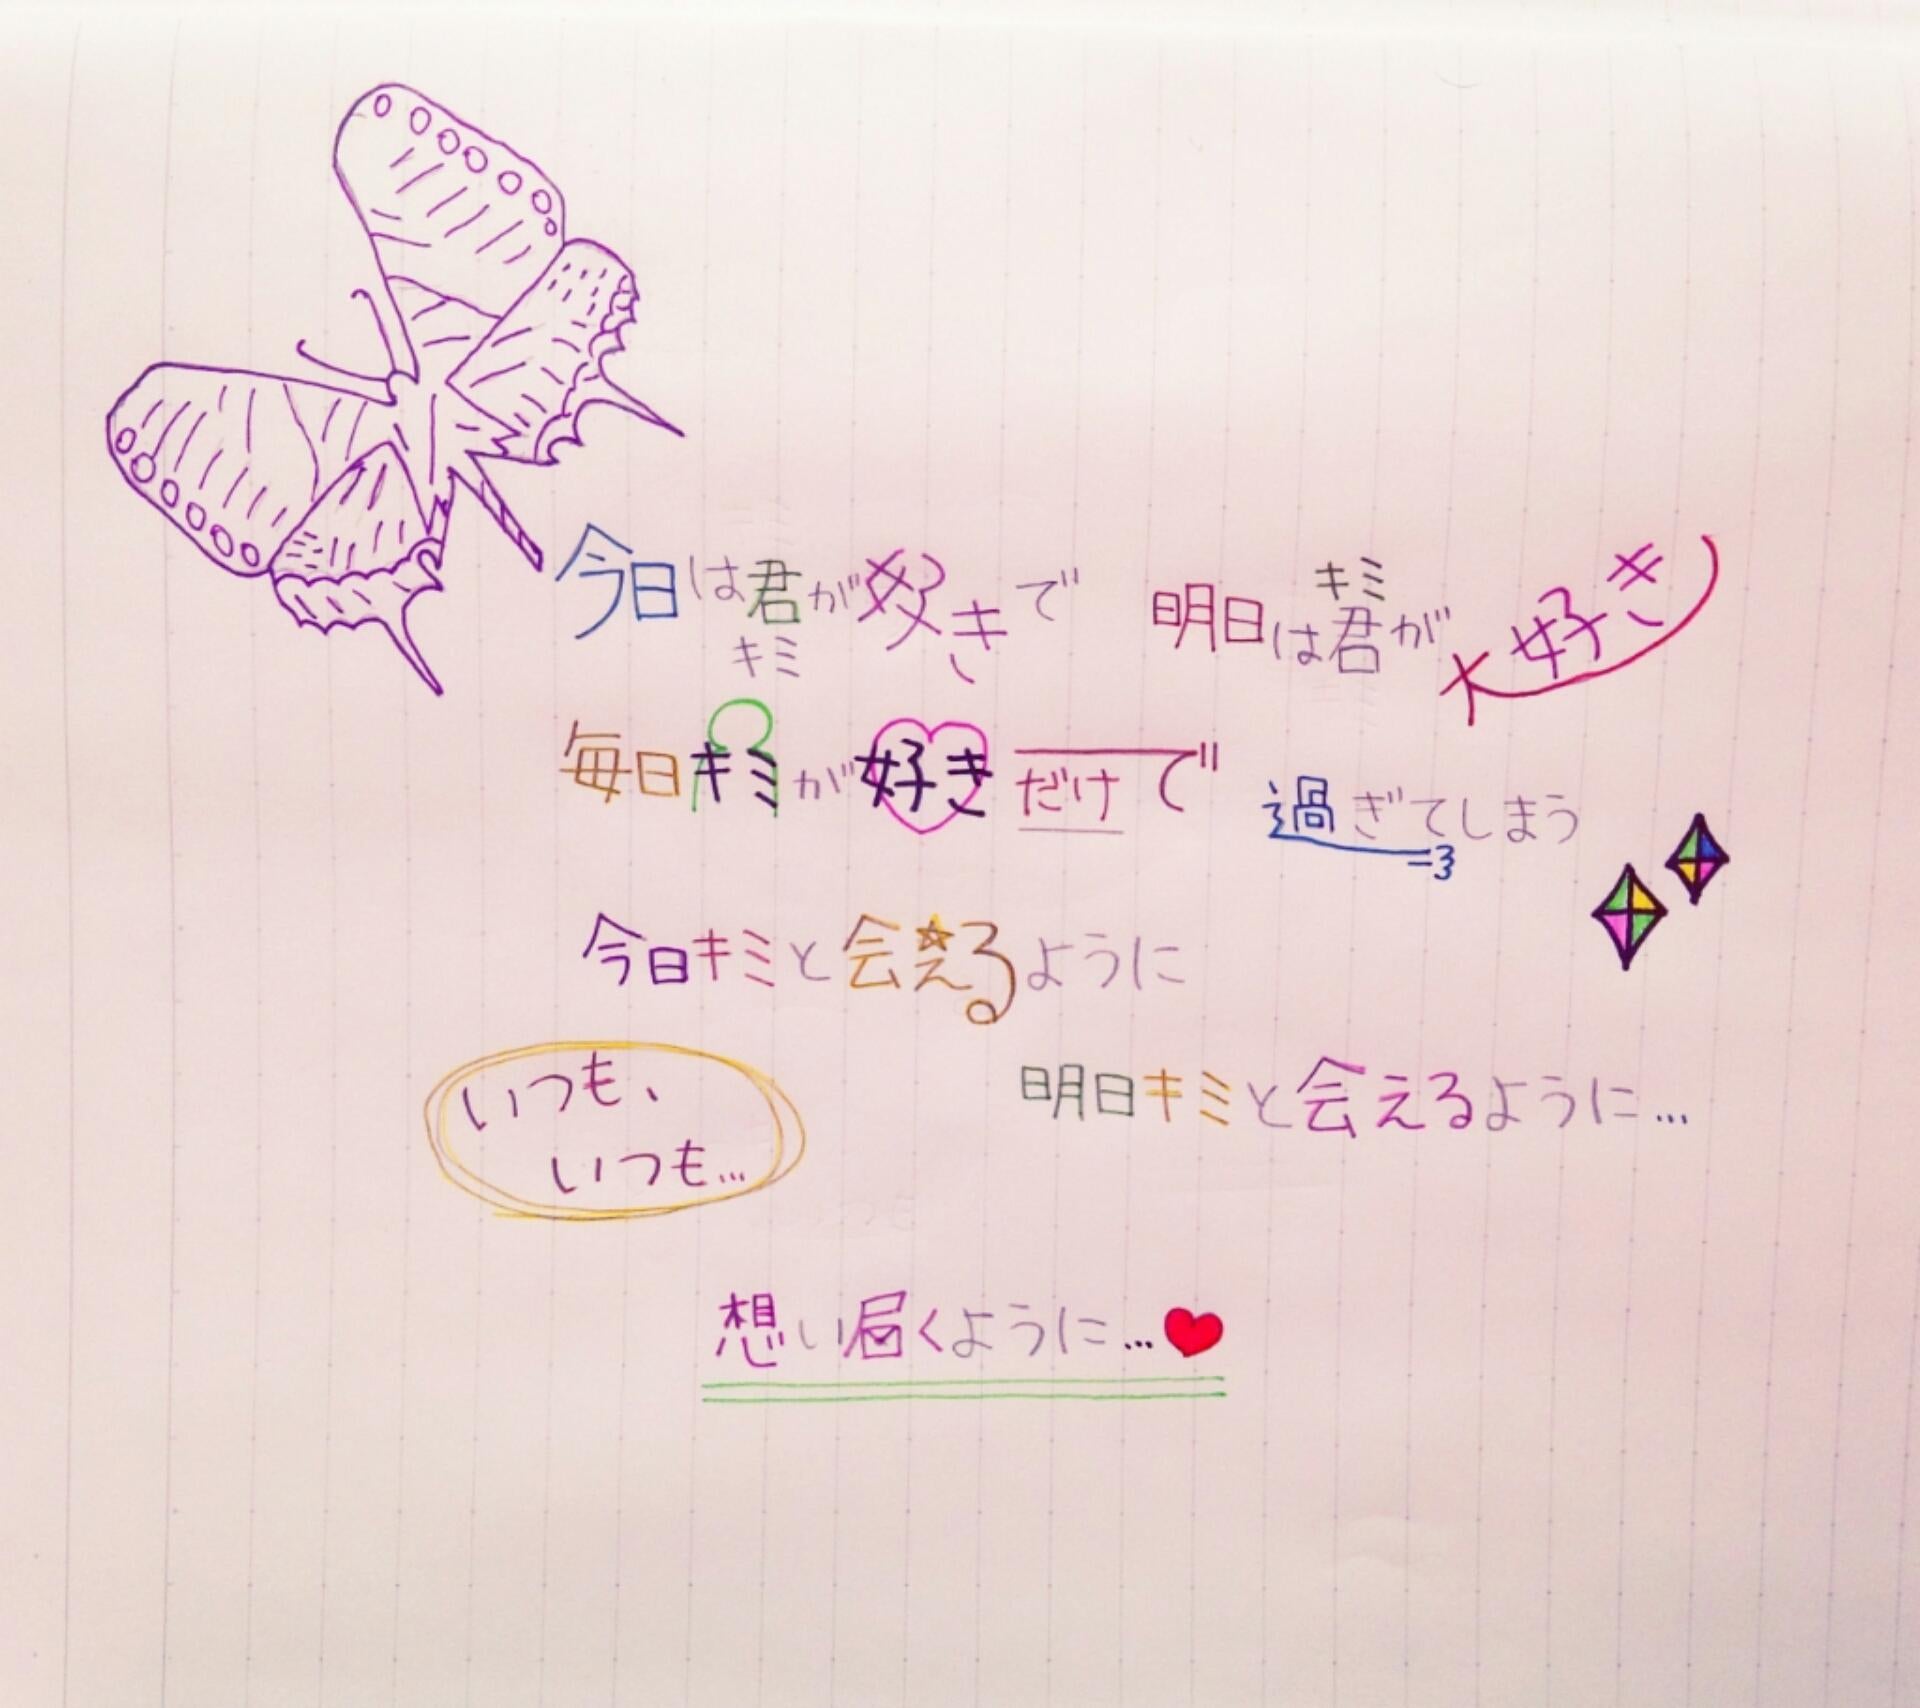 今日は君が好きで 明日は君が好き
キミ キミ
毎日キミが好きだけで 過ぎてしまう
今日キミと会えるように
明日キミと会えるように…
いつも、
いつも…
想い届くように…♥